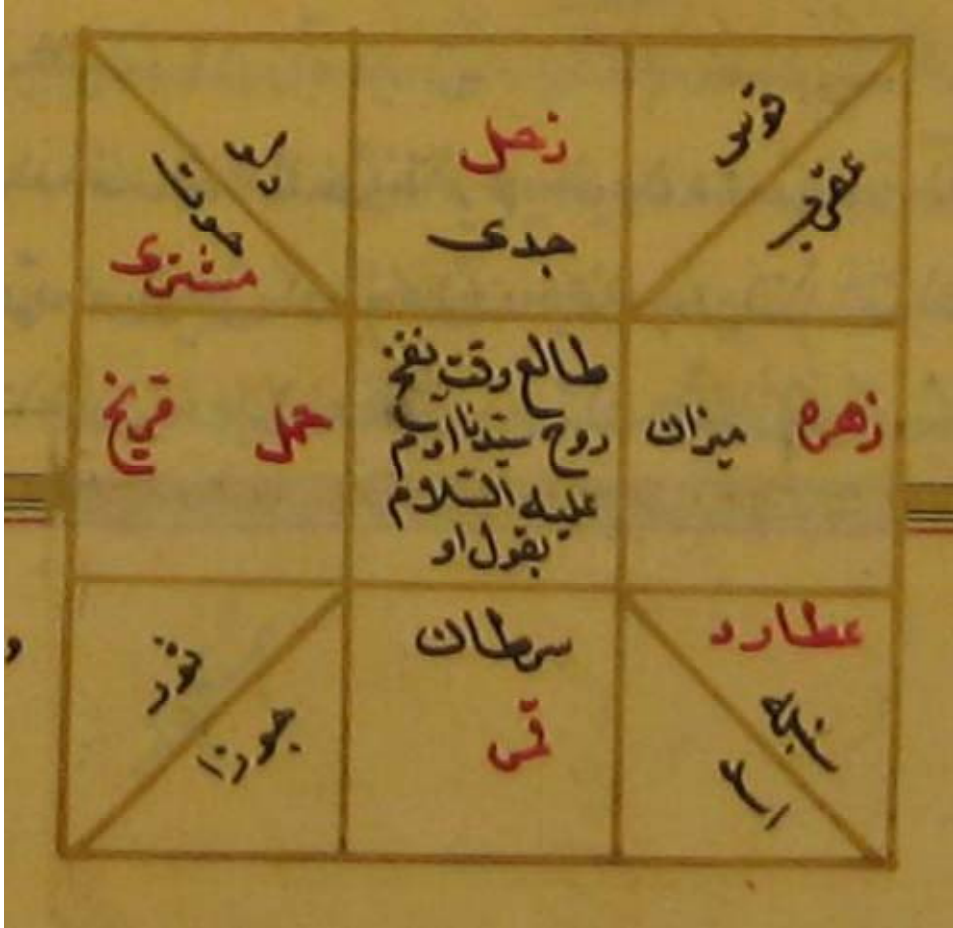 قوس
عقرب
زحل
جدى
دلو
حوت
مشترى
زهره
ميزان
طالع وقت نفخ
روح سيّدنا آدم
عليه السّلام
بقول او
حمل
مريخ
عطارد
سنبله
اسد
سرطان
قمر
ثور
جوزا
و